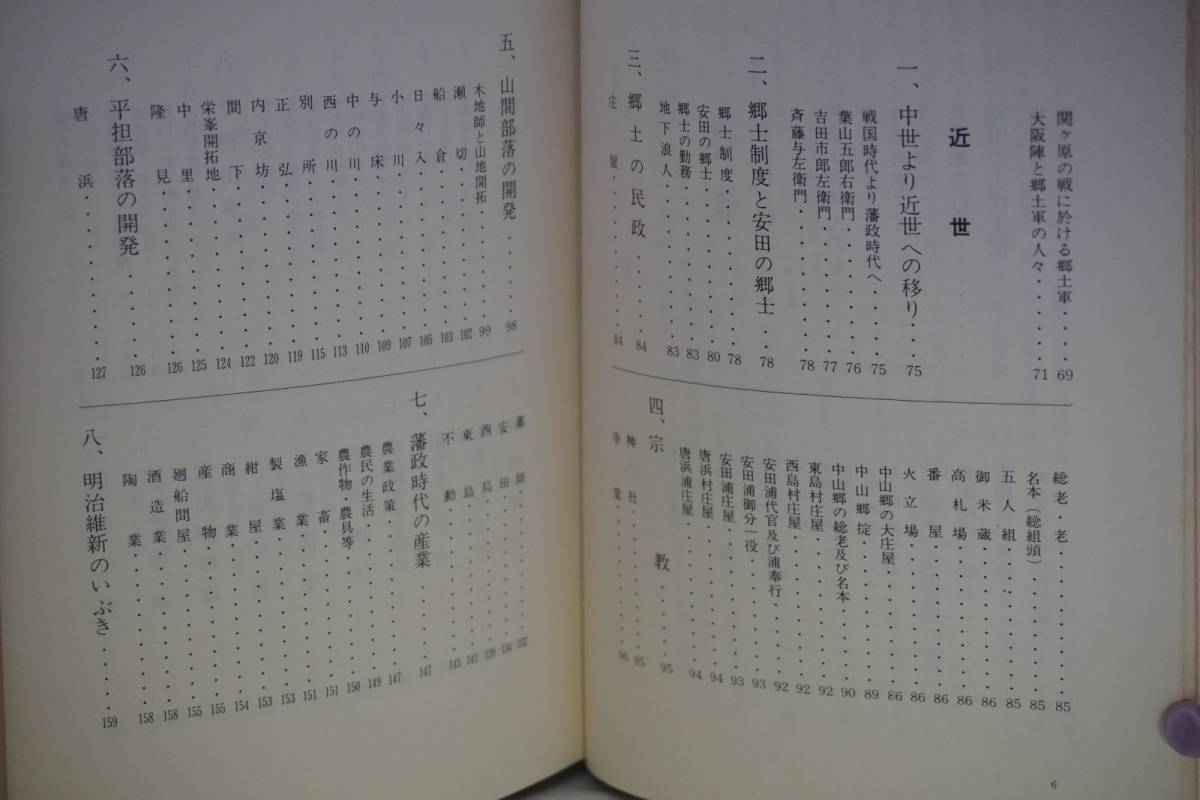 関ヶ原の戦に於ける郷土軍・・・・69
大阪陣と郷土軍の人々・・・・・・71
近世
一、中世より近世への移り・・75
戦国時代より藩政時代へ・・・・75
葉山五郎右衛門・・・・・・・・76
吉田市郎左衛門・・・・・・・・77
斉藤与左衛門・・・・・・・・・78
二、郷士制度と安田の郷士・・78
郷士制度・・・・・・・・・・・78
安田の郷士・・・・・・・・・・80
郷士の勤務・・・・・・・・・・83
地下浪人・・・・・・・・・・・83
三、郷土の民政・・・・・・・84
庄屋・・・・・・・・・・・・・84
総老・・・・・・・・・・・・・85
名本(総組頭)・・・・・・・・・85
五人組・・・・・・・・・・・・85
御米蔵・・・・・・・・・・・・86
高札場・・・・・・・・・・・・86
番屋・・・・・・・・・・・・・86
火立場・・・・・・・・・・・・86
中山郷の大庄屋・・・・・・・・86
中山郷掟・・・・・・・・・・・89
中山郷の総老及び名本・・・・・90
東島村庄屋・・・・・・・・・・92
西島村庄屋・・・・・・・・・・92
安田浦代官及び浦奉行・・・・・92
安田浦御分一役・・・・・・・・93
安田浦庄屋・・・・・・・・・・93
唐浜村庄屋・・・・・・・・・・94
唐浜浦庄屋・・・・・・・・・・94
四、宗教・・・・・・・・・・95
神社・・・・・・・・・・・・・95
寺堂・・・・・・・・・・・・・96
6
五、山間部落の開発・・・・・98
木地師と山地開拓・・・・・・・99
瀬切・・・・・・・・・・・・・102
船倉・・・・・・・・・・・・・103
日々入・・・・・・・・・・・・105
小川・・・・・・・・・・・・・107
与床・・・・・・・・・・・・・109
中の川・・・・・・・・・・・・110
西の川・・・・・・・・・・・・113
別所・・・・・・・・・・・・・115
正弘・・・・・・・・・・・・・119
内京坊・・・・・・・・・・・・120
間下・・・・・・・・・・・・・122
栄峯開拓地・・・・・・・・・・124
中里・・・・・・・・・・・・・125
隆見・・・・・・・・・・・・・126
六、平担部落の開発・・・・・126
唐浜・・・・・・・・・・・・・127
薬師・・・・・・・・・・・・・132
安田・・・・・・・・・・・・・134
西島・・・・・・・・・・・・・139
東島・・・・・・・・・・・・・141
不動・・・・・・・・・・・・・145
七、藩政時代の産業・・・・・147
農業政策・・・・・・・・・・・147
農民の生活・・・・・・・・・・149
農作物・農具等・・・・・・・・150
家畜・・・・・・・・・・・・・151
漁業・・・・・・・・・・・・・151
製塩業・・・・・・・・・・・・153
紺屋・・・・・・・・・・・・・153
商業・・・・・・・・・・・・・154
産物・・・・・・・・・・・・・155
廻船問屋・・・・・・・・・・・155
酒造業・・・・・・・・・・・・158
陶業・・・・・・・・・・・・・158
八、明治維新のいぶき・・・・159